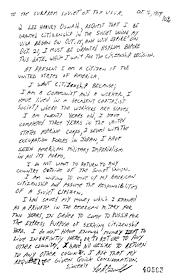 TO THE SUPREME SOVIET OF THE U.S.S.R.
I, LEE HARVEY OSWALD, REQUEST THAT I BE
GRANTED CITIZENSHIP IN THE SOVIET UNION, MY
VISA BEGAN ON OCT. 15, AND WILL EXPIRE ON
OCT. 21, I MUST BE GRANTED ASYLUM BEFORE
THIS DATE, WHILE I WAIT FOR THE CITIZENSHIP DECISION.
AT PRESENT I AM A CITIZEN OF THE
UNITED STATES OF AMERICA.
I WANT CITIZENSHIP BECAUSE;
I AM A COMMUNIST AND A WORKER, I
HAVE LIVED IN A DECADENT CAPITALIST
SOCIETY WHERE THE WORKERS ARE SLAVES.
I AM TWENTY YEARS OLD, I HAVE
COMPLETED THREE YEARS IN THE UNITED
STATES MARINE CORPS, I SERVED WITH THE
OCCUPATION FORCES IN JAPAN, I HAVE
SEEN AMERICAN MILITARY IMPERIALISM
IN ALL ITS FORMS.
I DO NOT WANT TO RETURN TO ANY
COUNTRY OUTSIDE OF THE SOVIET UNION.
I AM WILLING TO GIVE UP MY AMERICAN
CITIZENSHIP AND ASSUME THE RESPONSIBILITIES
OF A SOVIET CITIZEN.
I HAD SAVED MY MONEY WHICH I EARNED
AS A PRIVATE IN THE AMERICAN MILITARY FOR
TWO YEARS, IN ORDER TO COME TO RUSSIA FOR
THE EXPRESS PURPOSE OF SEEKING CITIZENSHIP
HERE. I DO NOT HAVE ENOUGH MONEY LEFT TO
LIVE INDEFINITELY HERE, OR TO RETURN TO ANY
OTHER COUNTRY. I HAVE NO DESIRE TO RETURN
TO ANY OTHER COUNTRY. I ASK THAT MY
REQUEST BE GIVEN QUICK CONSIDERATION.
SINCERELY